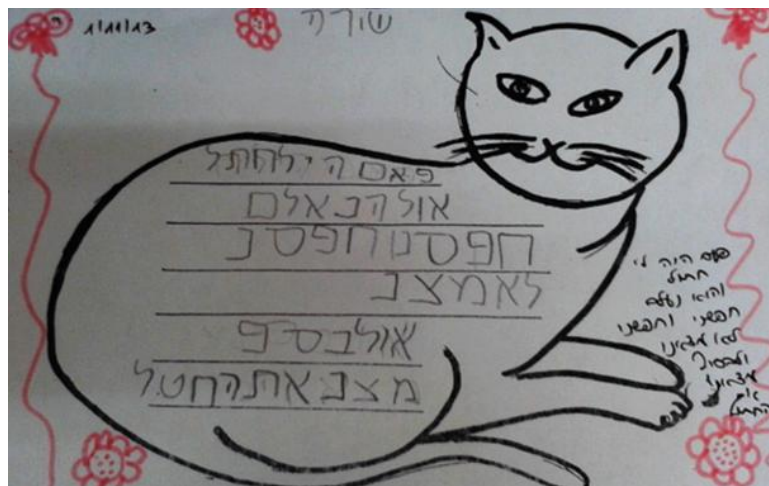 1/11/13
שירה
פאם הילחתל
אולהנאלם
חפסנוחפסנ
לאמצנ
אולבסיפ
מצנאתהחטל
פעם היה לי
חתול
והוא נעלם
חפשנו וחפשנו
לא מצאנו
ולבסוף
מצאנו
את
החתול